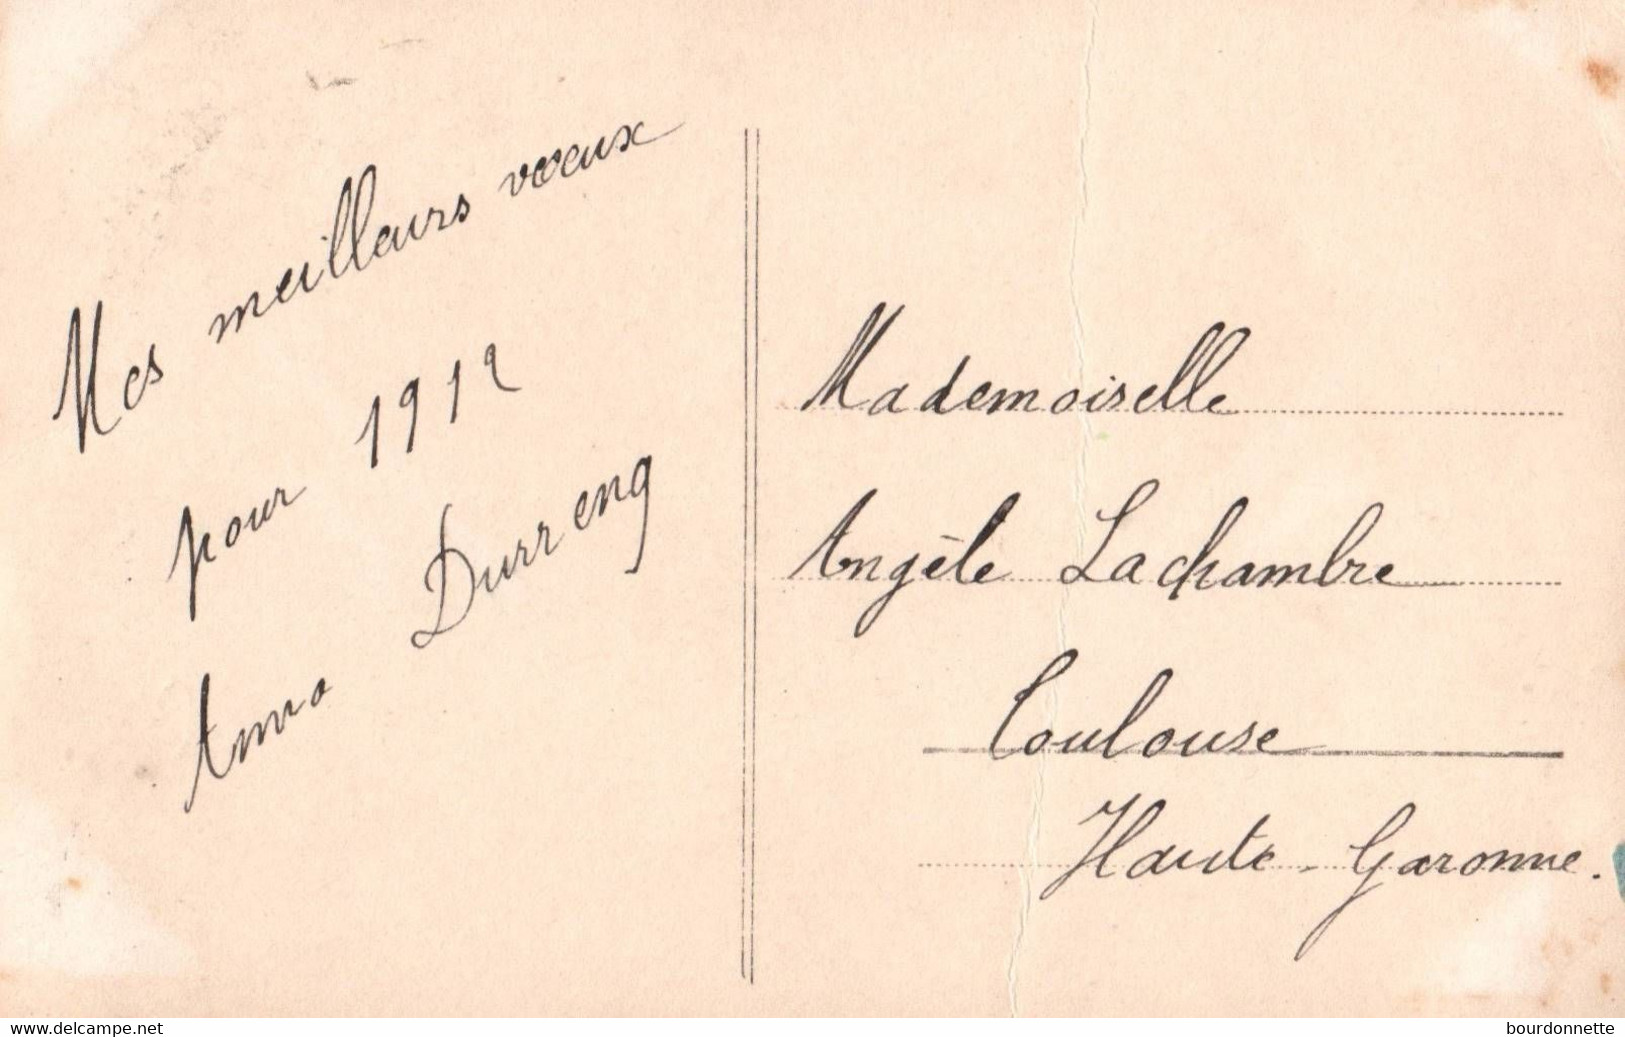 Mes meilleurs vœux
pour 1912
Anna Durreng
Mademoiselle
Angèle Lachambre
Toulouse
Haute-Garonne.
www.delcampe.net
bourdonnette